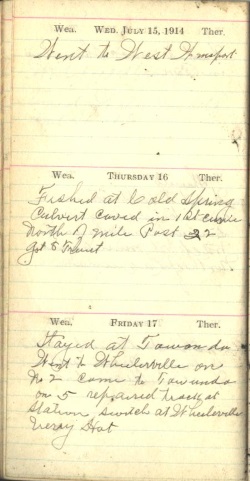 Wea. WED. JULY 15, 1914 Ther.
Went to West
Wea. THURSDAY 16 Ther.
Fished at Cold Spring
Culvert caved in 1st curve
North of mile Post 22
got 5 Trout
Wea. FRIDAY 17 Ther.
Stayed at Towanda
Went to Wheelerville on
No 2 came to Towanda
on 5 repaired track at
Station, switch at Wheelerville
Very Hot